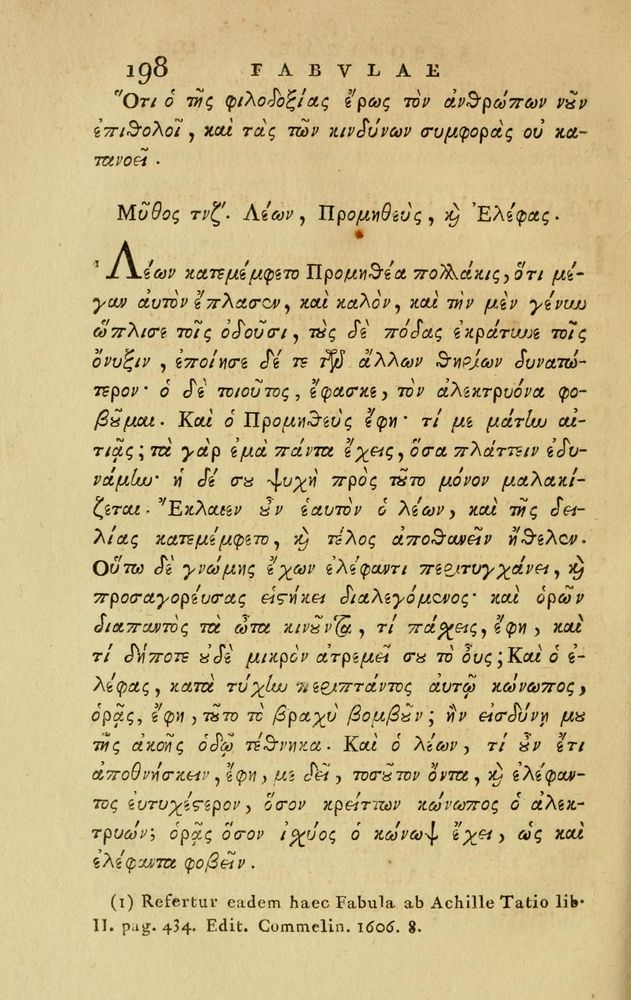 198 FABVLAE
Ὅτι ὁ τῆς φιλοδοξίας ἔρως τὸν ἀνθρώπων νοῦν
ἐπιθολοῖ, καὶ τὰς τῶν κινδύνων συμφορὰς οὐ κα-
τανοεῖ.
Μῦθος τνζʹ. Λέων, Προμηθεὺς, καὶ Ἐλέφας.
¹ Λέων κατεμέμφετο Προμηθέα πολλάκις, ὅτι μέ-
γαν αὐτὸν ἔπλασεν, καὶ καλὸν, καὶ τὴν μὲν γένυν
ὥπλισε τοῖς ὀδοῦσι, τοὺς δὲ πόδας ἐκράτυνε τοῖς
ὄνυξιν, ἐποίησε δέ τε τῶν ἄλλων θηρίων δυνατώ-
τερον· ὁ δὲ τοιοῦτος, ἔφασκε, τὸν ἀλεκτρυόνα φο-
βοῦμαι. Καὶ ὁ Προμηθεὺς ἔφη· τί με μάτην αἰ-
τιᾷς; τὰ γὰρ ἐμὰ πάντα ἔχεις, ὅσα πλάττειν ἐδυ-
νάμην· ἡ δέ σου ψυχὴ πρὸς τοῦτο μόνον μαλακί-
ζεται. Ἔκλαιεν οὖν ἑαυτὸν ὁ λέων, καὶ τῆς δει-
λίας κατεμέμφετο, καὶ τέλος ἀποθανεῖν ἤθελεν.
Οὕτω δὲ γνώμης ἔχων ἐλέφαντι περιτυγχάνει, καὶ
προσαγορεύσας εἱστήκει διαλεγόμενος· καὶ ὁρῶν
διαπαντὸς τὰ ὦτα κινοῦντα, τί πάσχεις, ἔφη, καὶ
τί δήποτε οὐδὲ μικρὸν ἀτρεμεῖ σου τὸ οὖς; Καὶ ὁ ἐ-
λέφας, κατὰ τύχην περιπτάντος αὐτῷ κώνωπος,
ὁρᾷς, ἔφη, τοῦτο τὸ βραχὺ βομβοῦν; ἢν εἰσδύνῃ μου
τῆς ἀκοῆς ὁδῷ τέθνηκα. Καὶ ὁ λέων, τί οὖν ἔτι
ἀποθνήσκειν, ἔφη, με δεῖ, τοσοῦτον ὄντα, καὶ ἐλέφαν-
τος εὐτυχέστερον, ὅσον κρείττων κώνωπος ὁ ἀλεκ-
τρυών; ὁρᾷς ὅσον ἰσχύος ὁ κώνωψ ἔχει, ὡς καὶ
ἐλέφαντα φοβεῖν.
(1) Refertur eadem haec Fabula ab Achille Tatio lib.
II. pag. 434. Edit. Commelin. 1606. 8.